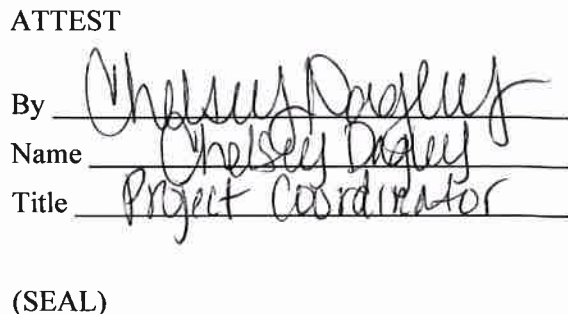 ATTEST
By Chelsey Dagley
Name Chelsey Dagley
Title Project Coordinator
(SEAL)